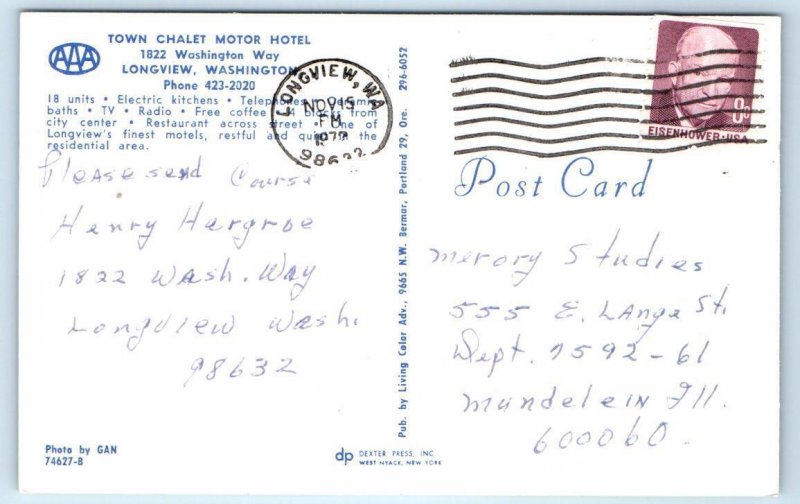 AAA
TOWN CHALET MOTOR HOTEL
1822 Washington Way
LONGVIEW, WASHINGTON
Phone 423-2020
18 units • Electric kitchens • Telephones • Ceramic
baths • TV • Radio • Free coffee • 4 blocks from
city center • Restaurant across street • One of
Longview's finest motels, restful and quiet in the
residential area.
LONGVIEW, WA
NOV 15
PM
1972
98632
8c
EISENHOWER·USA
Please send Course
Henry Hargroe
1822 Wash. Way
Longview Wash.
98632
Pub. by Living Color Adv., 9665 N.W. Bermar, Portland 29, Ore. 296-6052
Post Card
Merory Studies
555 E. Lange St.
Dept. 7592-61
Mundelein Ill.
600060.
Photo by GAN
74627-B
dp DEXTER PRESS, INC
WEST NYACK, NEW YORK